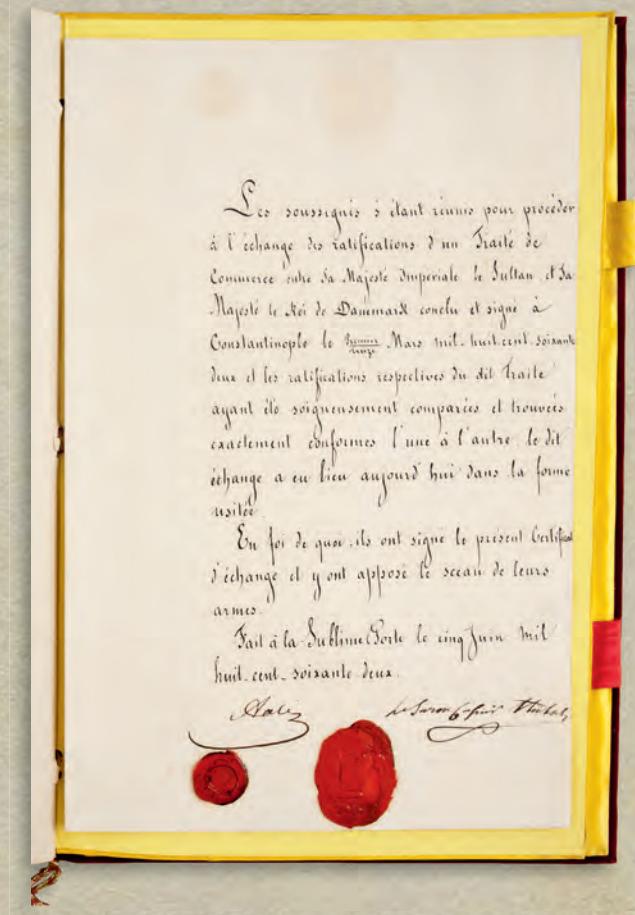 Les soussignés s'étant réunis pour procéder
à l'échange des ratifications d'un Traité de
Commerce entre Sa Majesté Impériale le Sultan et Sa
Majesté le Roi de Danemark conclu et signé à
Constantinople le Mars mil-huit-cent-soixante
deux et les ratifications respectives du dit Traité
ayant été soigneusement comparées et trouvées
exactement conformes l'une à l'autre le dit
échange a eu lieu aujourd'hui dans la forme
usitée
En foi de quoi, ils ont signé le présent Certificat
d'échange et y ont apposé le sceau de leurs
armes.
Fait à la Sublime Porte le cinq Juin mil
huit-cent-soixante deux.
Aali